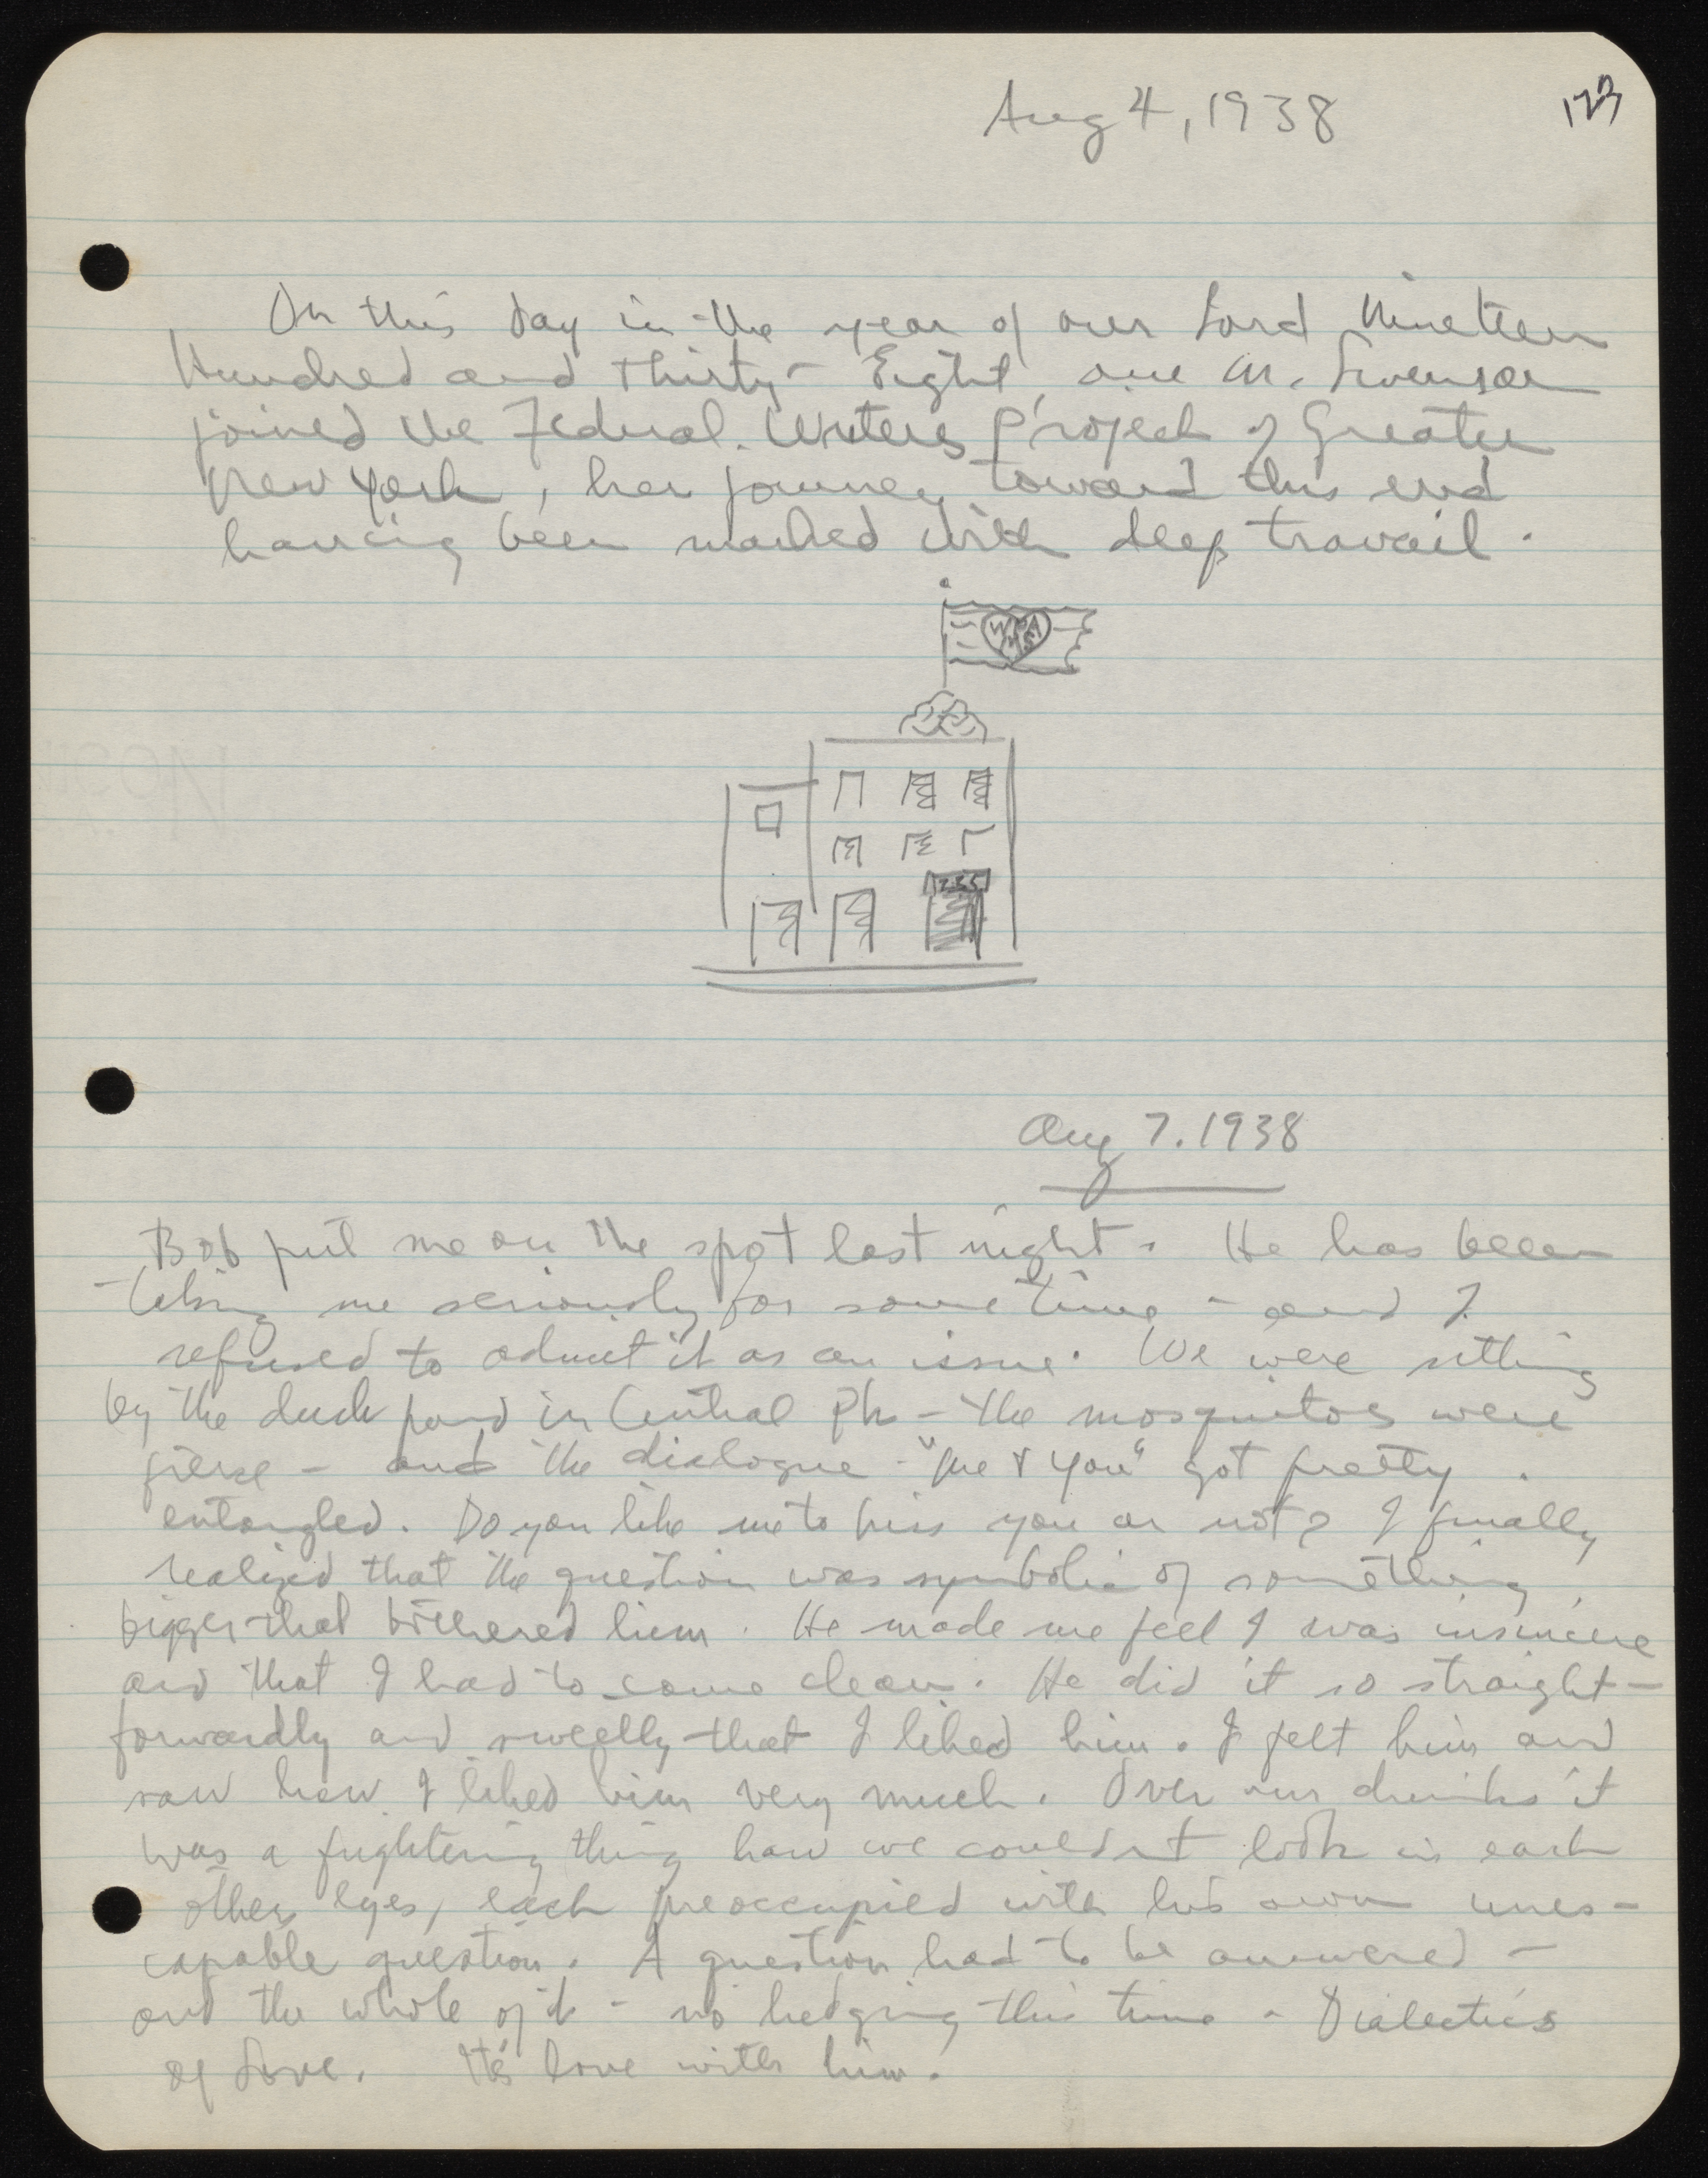 Aug 4, 1938
123
On this day in the year of our Lord Nineteen
Hundred and Thirty-Eight, one M. Swenson
joined the Federal Writers Project of Greater
New York, her journey toward this end
having been marked with deep travail.
WPA
MS
235
Aug 7. 1938
Bob put me on the spot last night. He has been
taking me seriously for some time - and I
refused to admit it as an issue. We were sitting
by the duck pond in Central Pk - the mosquitos were
fierce - and the dialogue - "Me & You" got pretty
entangled. Do you like me to kiss you or not? I finally
realized that the question was symbolic of something
bigger that bothered him. He made me feel I was insincere
and that I had to come clean. He did it so straight-
forwardly and sweetly that I liked him. I felt him and
saw how I liked him very much. Over our drinks it
was a frightening thing how we couldn't look in each
others eyes, each preoccupied with his own unes-
capable question. A question had to be answered -
and the whole of it - no hedging this time - Dialectics
of Love. It's love with him.